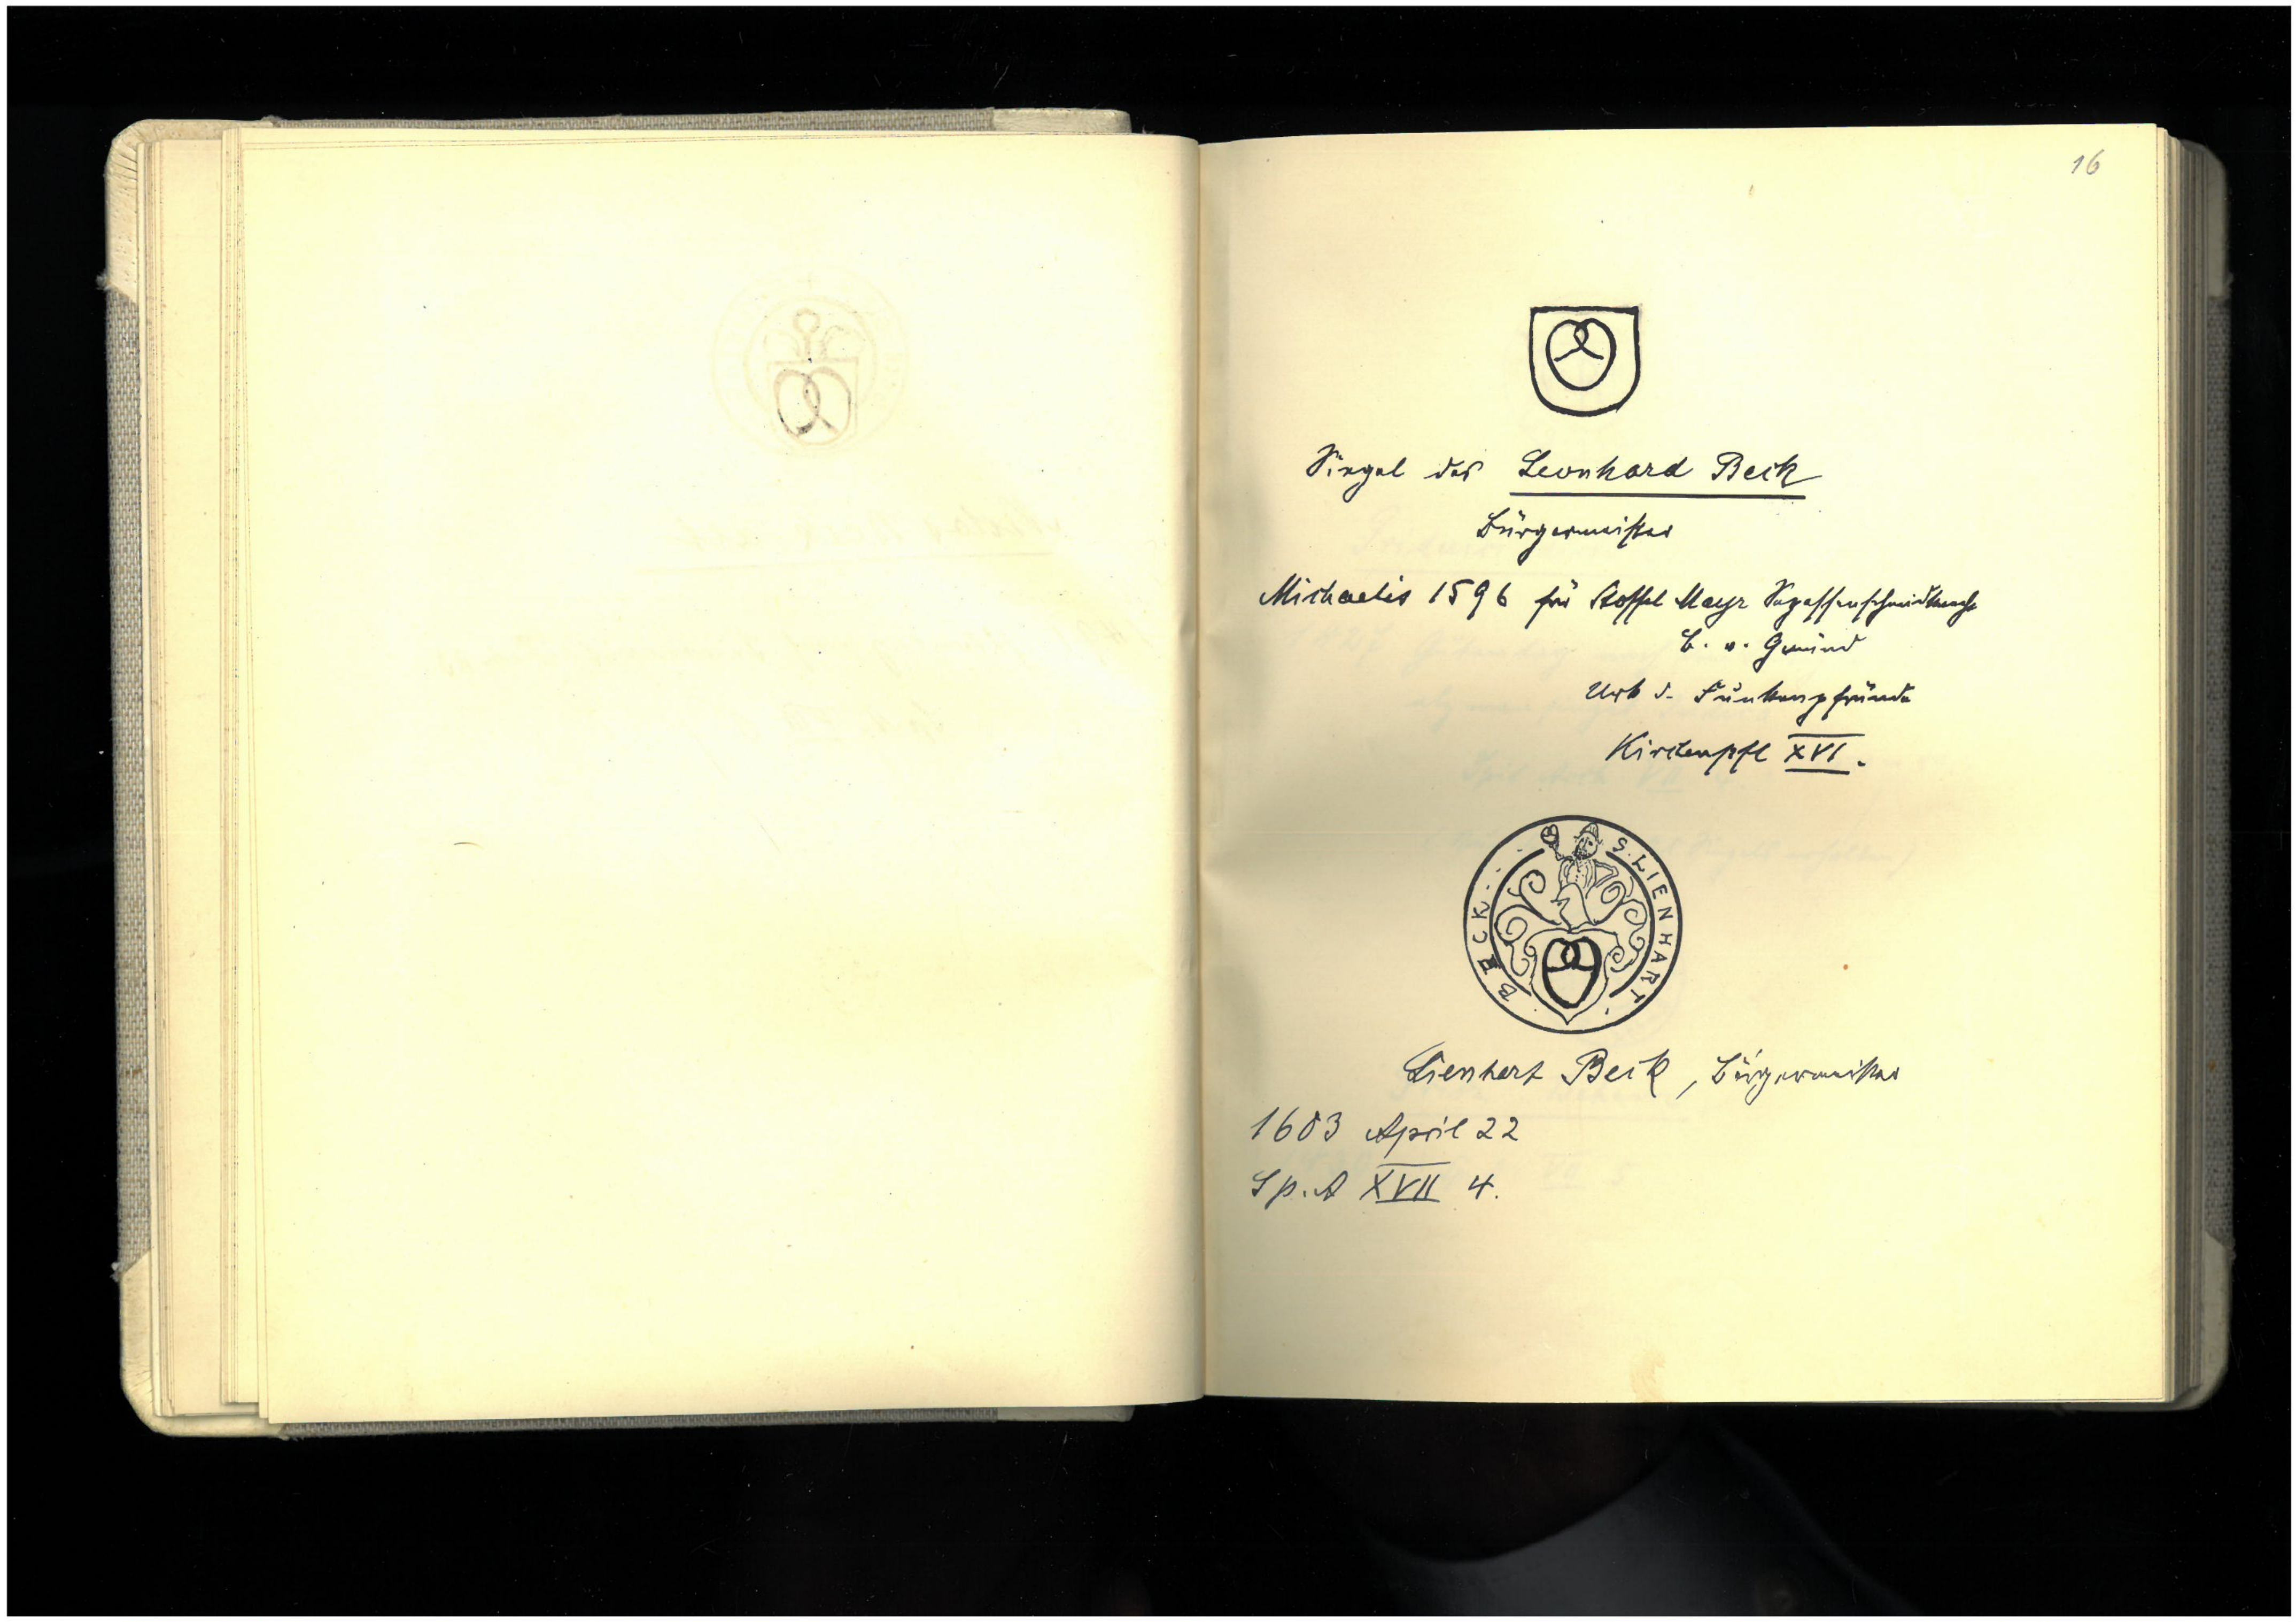 16
Siegel des Leonhard Beck
Bürgermeister
Michaelis 1596 für Stoffel Mayr Segessenschmidknecht
B. v. Gmünd
Urk d. Funkenpfründe
Kirchenpfl XVI.
S. LIENHART
BECK
Lienhart Beck, Bürgermeister
1603 April 22
Sp. A XVII 4.